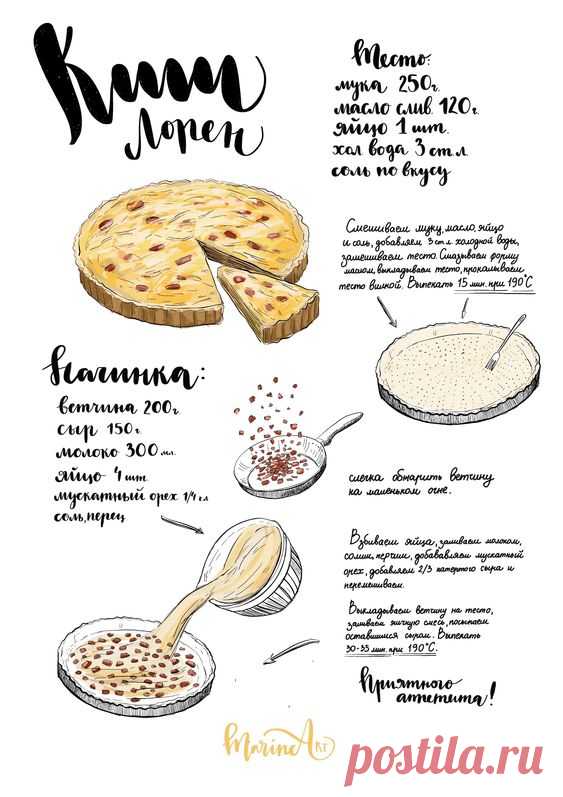 Киш
Лорен
Тесто:
мука 250г.
масло слив. 120г.
яйцо 1 шт.
хол вода 3 ст.л.
соль по вкусу
Смешиваем муку, масло, яйцо
и соль, добавляем 3 ст.л холодной воды,
замешиваем тесто. Смазываем форму
маслом, выкладываем тесто, прокалываем
тесто вилкой. Выпекать 15 мин. при 190°C
Начинка:
ветчина 200г.
сыр 150г.
молоко 300 мл.
яйцо 4 шт
мускатный орех 1/4 ч л
соль, перец
слегка обжарить ветчину
на маленьком огне.
Взбиваем яйца, заливаем молоком,
солим, перчим, добавляем мускатный
орех, добавляем 2/3 натертого сыра и
перемешиваем.
Выкладываем ветчину на тесто,
заливаем яичную смесь, посыпаем
оставшимся сыром. Выпекать
30-35 мин. при 190°C.
Приятного
аппетита!
MarinaArt
postila.ru